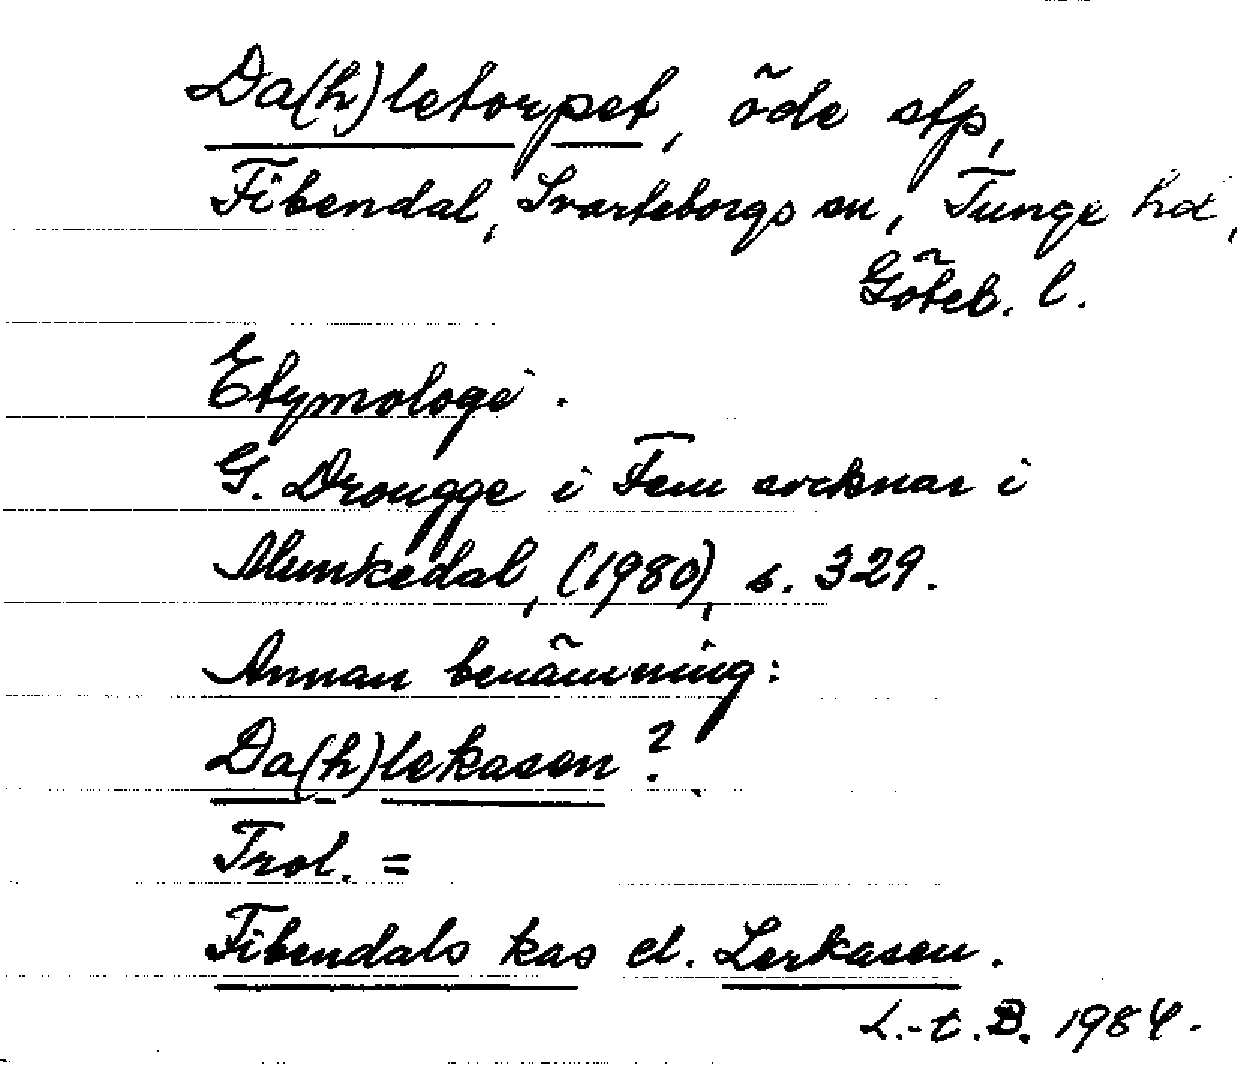 Da(h)letorpet, öde stp,
Fibendal, Svarteborgs sn, Tunge hd,
Göteb. l.
Etymologi.
G. Drougge i Fem socknar i
Munkedal, (1980), s. 329.
Annan benämning:
Da(h)lekasen?
Trol. =
Fibendals kas el. Lerkasen.
L.-t. B. 1984.